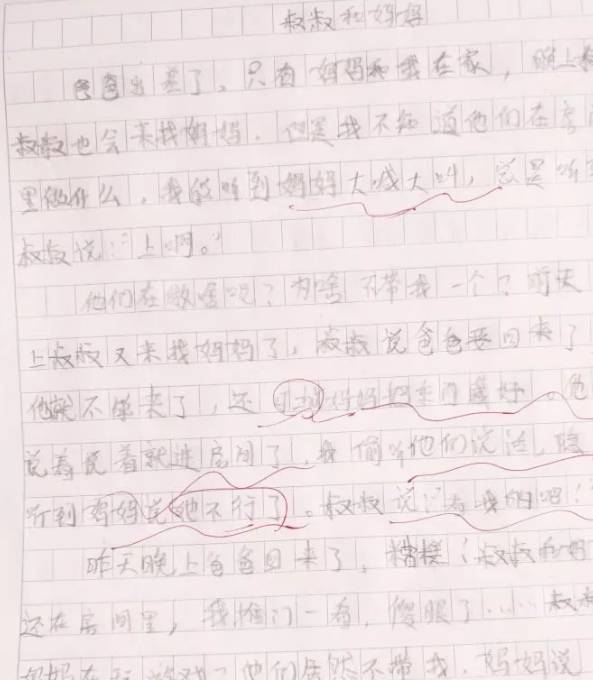 叔叔和妈妈
爸爸出差了，只有妈妈和我在家，晚上
叔叔也会来找妈妈．但是我不知道他们在房
里做什么，我能听到妈妈大喊大叫，总是听
叔叔说：“上啊。”
他们在做啥呢？为啥不带我一个？前天
上叔叔又来找妈妈了，叔叔说爸爸要回来了
他就不能来了，还
说着说着就进房间了．我偷听他们说话，隐
听到妈妈说她不行了。叔叔说：“看我的吧！
昨天晚上爸爸回来了，糟糕！叔叔和妈
还在房间里，我推门一看，傻眼了……叔
妈妈在玩游戏？他们居然不带我．妈妈说